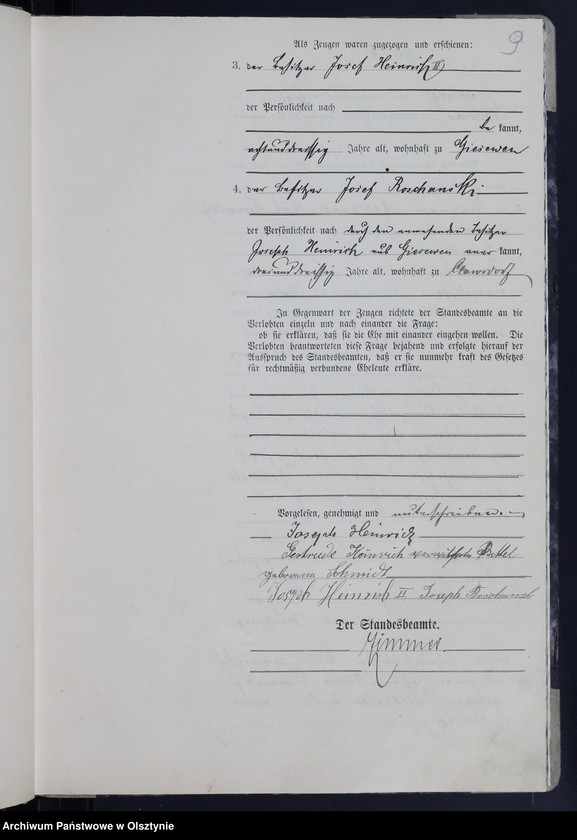 9
Als Zeugen waren zugezogen und erschienen:
3. der Besitzer Josef Heinrich II
der Persönlichkeit nach
be kannt,
achtunddreissig Jahre alt, wohnhaft zu Giesewen
4. der Besitzer Josef
der Persönlichkeit nach durch den anwesenden Besitzer
Joseph Heinrich aus Giesewen aner kannt,
dreiunddreissig Jahre alt, wohnhaft zu
In Gegenwart der Zeugen richtete der Standesbeamte an
die Verlobten einzeln und nach einander die Frage:
ob sie erklären, daß sie die Ehe mit einander eingehen wollen. Die
Verlobten beantworteten diese Frage bejahend und erfolgte hierauf der
Ausspruch des Standesbeamten, daß er sie nunmehr kraft des Gesetzes
für rechtmäßig verbundene Eheleute erkläre.
Vorgelesen, genehmigt und unterschrieben.
Joseph Heinrich
Gertrude Heinrich verwitwete
geborene Schmidt
Joseph Heinrich II Joseph
Der Standesbeamte.
Zimmer
Archiwum Państwowe w Olsztynie